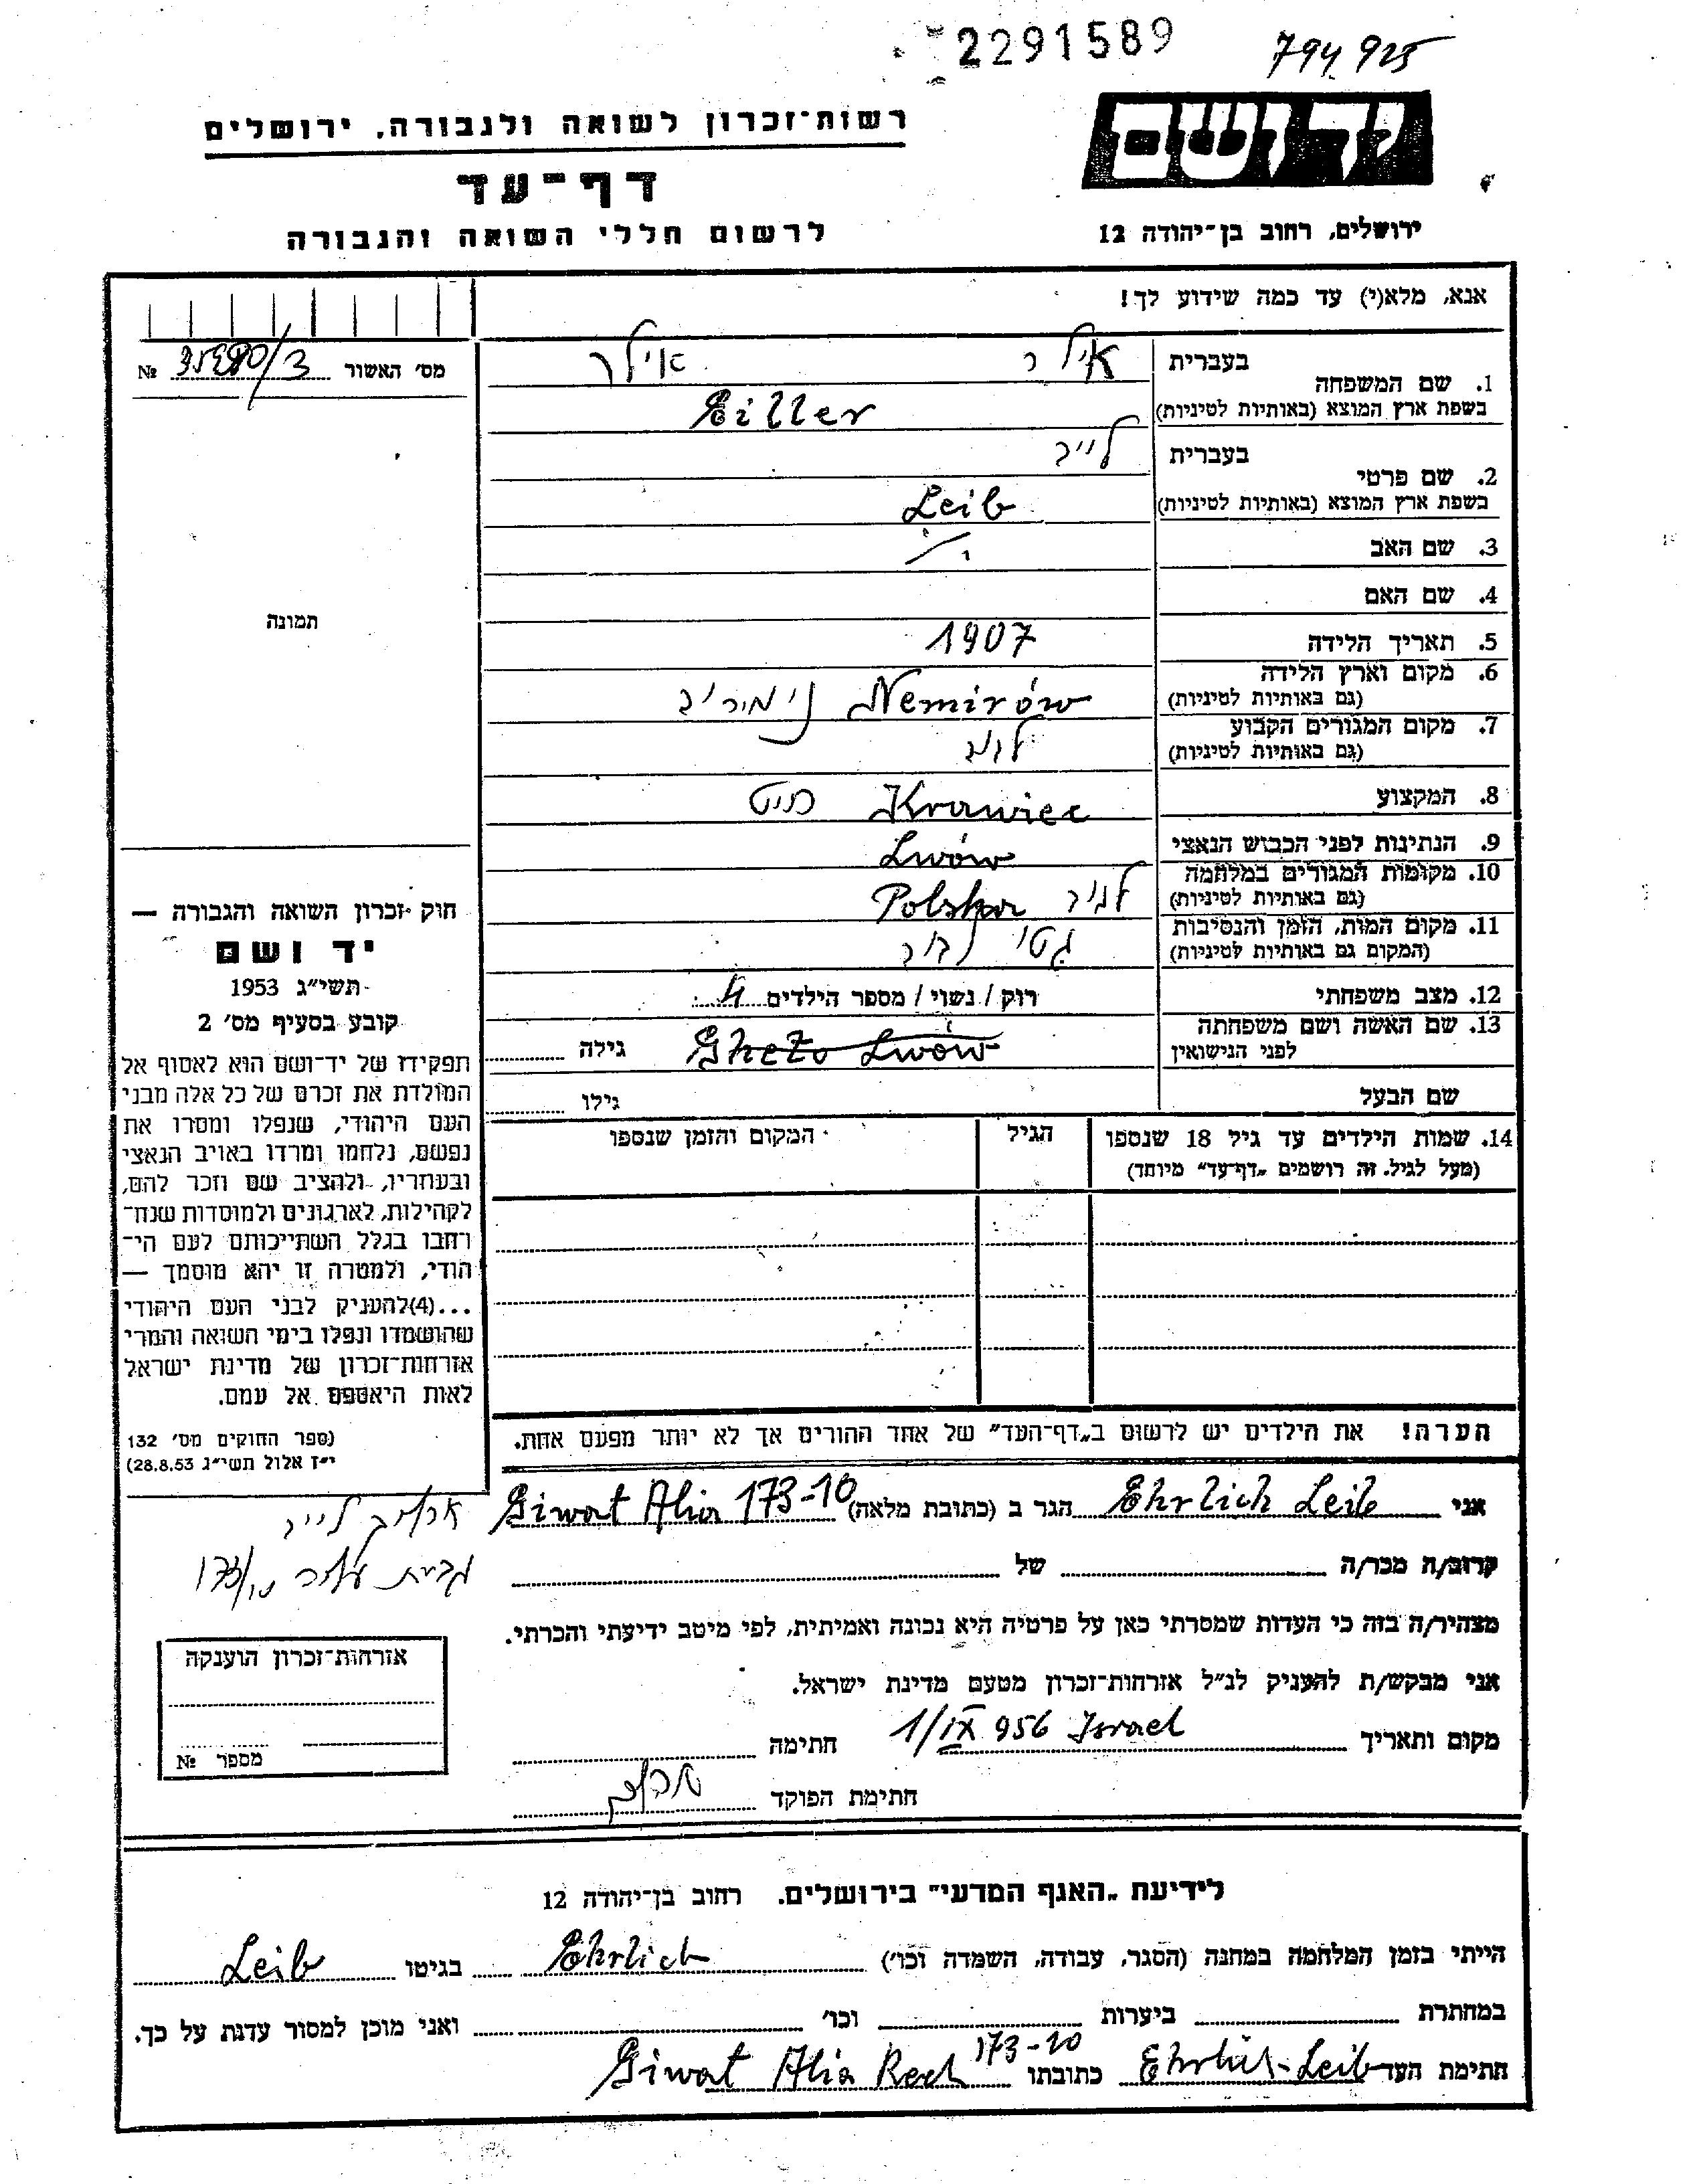 2291589 794925
יד ושם
רשות־זכרון לשואה ולגבורה, ירושלים
דף־עד
לרשום חללי השואה והגבורה
ירושלים, רחוב בן־יהודה 12
אנא, מלא(י) עד כמה שידוע לך!
מס' האשור № /3
בעברית אילר אילר
1. שם המשפחה
בשפת ארץ המוצא (באותיות לטיניות) Eiller
בעברית לייב
2. שם פרטי
בשפת ארץ המוצא (באותיות לטיניות) Leib
3. שם האב
4. שם האם
5. תאריך הלידה 1907
6. מקום וארץ הלידה
(גם באותיות לטיניות) Nemirów נימירוב
7. מקום המגורים הקבוע
(גם באותיות לטיניות) לבוב
8. המקצוע Krawiec חייט
9. הנתינות לפני הכבוש הנאצי Lwów
10. מקומות המגורים במלחמה
(גם באותיות לטיניות) לבוב Polska
11. מקום המות, הזמן והנסיבות
(המקום גם באותיות לטיניות) גטו לבוב
12. מצב משפחתי רוק / נשוי / מספר הילדים 4
13. שם האשה ושם משפחתה
לפני הנישואין Gheto Lwów גילה
שם הבעל גילו
14. שמות הילדים עד גיל 18 שנספו הגיל המקום והזמן שנספו
(מעל לגיל. זה רושמים „דף־עד" מיוחד)
הערה! את הילדים יש לרשום ב„דף־העד" של אחד ההורים אך לא יותר מפעם אחת.
תמונה
חוק זכרון השואה והגבורה —
יד ושם
תשי"ג 1953
קובע בסעיף מס' 2
תפקידו של יד־ושם הוא לאסוף אל
המולדת את זכרם של כל אלה מבני
העם היהודי, שנפלו ומסרו את
נפשם, נלחמו ומרדו באויב הנאצי
ובעוזריו, ולהציב שם וזכר להם,
לקהילות, לארגונים ולמוסדות שנח־
רחבו בגלל השתייכותם לעם הי־
הודי, ולמטרה זו יהא מוסמך —
...(4)להעניק לבני העם היהודי
שהושמדו ונפלו בימי השואה והמרי
אזרחות־זכרון של מדינת ישראל
לאות היאספם אל עמם.
(ספר החוקים מס' 132
י"ז אלול תשי"ג 28.8.53)
אני Ehrlich Leib הגר ב (כתובת מלאה) Giwat Alia 173-10
ארליך לייב
גבעת עליה 173/10
קרוב/ה מכר/ה של
מצהיר/ה בזה כי העדות שמסרתי כאן על פרטיה היא נכונה ואמיתית, לפי מיטב ידיעתי והכרתי.
אני מבקש/ת להעניק לנ"ל אזרחות־זכרון מטעם מדינת ישראל.
מקום ותאריך 1/IX 956 Israel חתימה
חתימת הפוקד
אזרחות־זכרון הוענקה
מספר №
לידיעת „האגף המדעי" בירושלים. רחוב בן־יהודה 12
הייתי בזמן המלחמה במחנה (הסגר, עבודה, השמדה וכו') Ehrlich בגיטו Leib
במחתרת ביערות וכו' ואני מוכן למסור עדות על כך.
חתימת העד Ehrlich-Leib כתובתו Giwat Alia 173-10